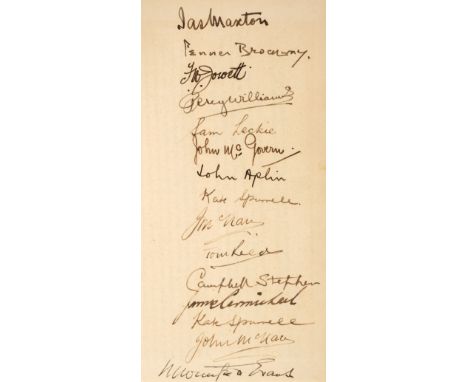 Jas Maxton
Fenner Brockway.
F W Jowett
Percy Williams
Sam Leckie
John McGovern.
John Aplin
Kate Spurrell.
Jn McNair
Tom Reed
Campbell Stephen
James Carmichael
Kate Spurrell
John McNair
Evans